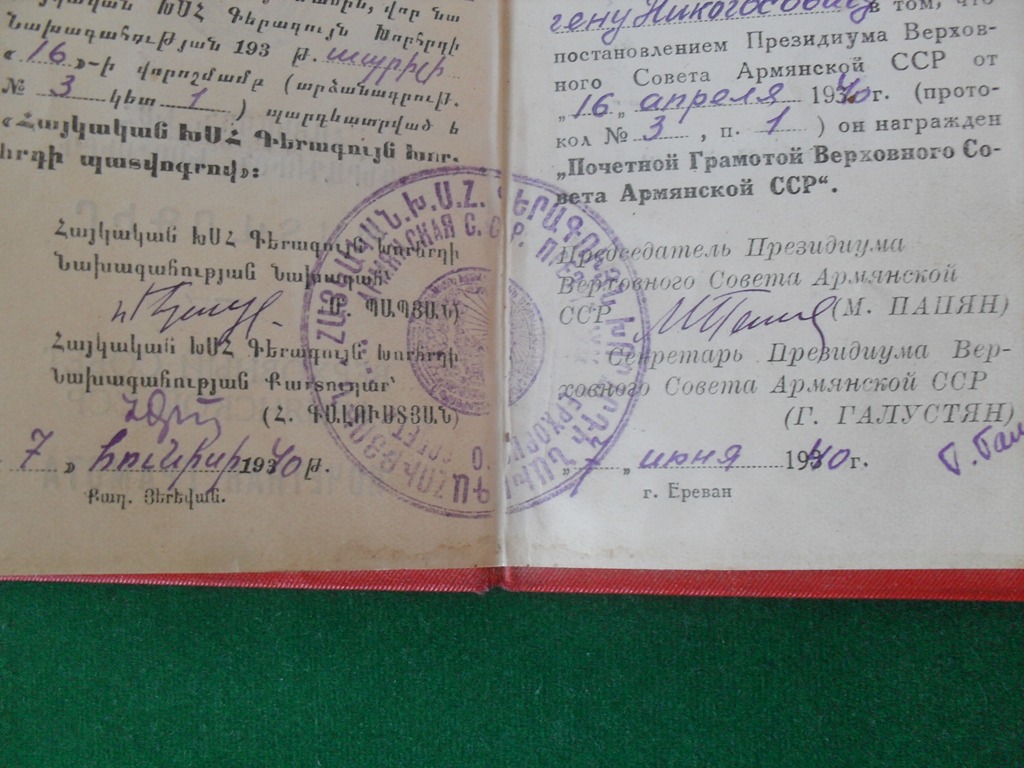 կական ԽՍՀ Գերագույն Խորհրդի
Նախագահության 193 թ. ապրիլի
«16»-ի վորոշմամբ (արձանագրութ.
№ 3 կետ 1) պարգևատրված է
«Հայկական ԽՍՀ Գերագույն Խոր-
հրդի պատվոգրով»:
Հայկական ԽՍՀ Գերագույն Խորհրդի
Նախագահության Նախագահ՝
(Մ. ՊԱՊՅԱՆ)
Հայկական ԽՍՀ Գերագույն Խորհրդի
Նախագահության Քարտուղար՝
(Հ. ԳԱԼՈՒՍՏՅԱՆ)
7 » հունիսի 1940 թ.
Քաղ. Յերեվան.
гену Никогосовичу в том, что
постановлением Президиума Верхов-
ного Совета Армянской ССР от
„16„ апреля 1940г. (прото-
кол № 3, п. 1) он награжден
„Почетной Грамотой Верховного Со-
вета Армянской ССР“.
Председатель Президиума
Верховного Совета Армянской
ССР (М. ПАПЯН)
Секретарь Президиума Вер-
ховного Совета Армянской ССР
(Г. ГАЛУСТЯН)
„7„ июня 1940г.
г. Ереван